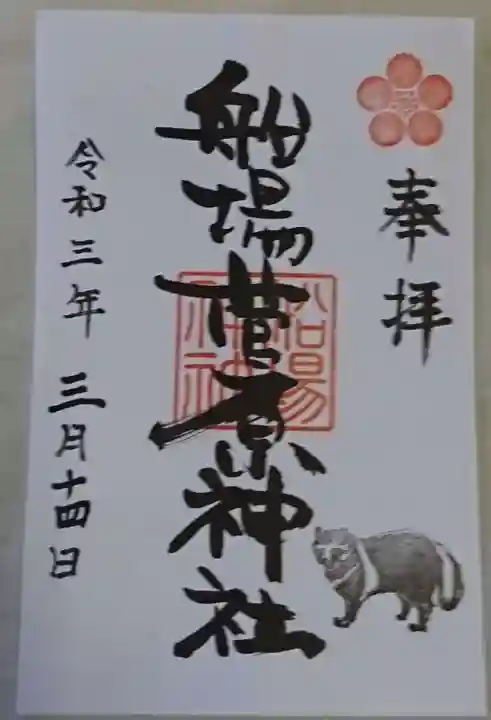 奉拝
船場菅原神社
船場
神社
令和三年 三月十四日